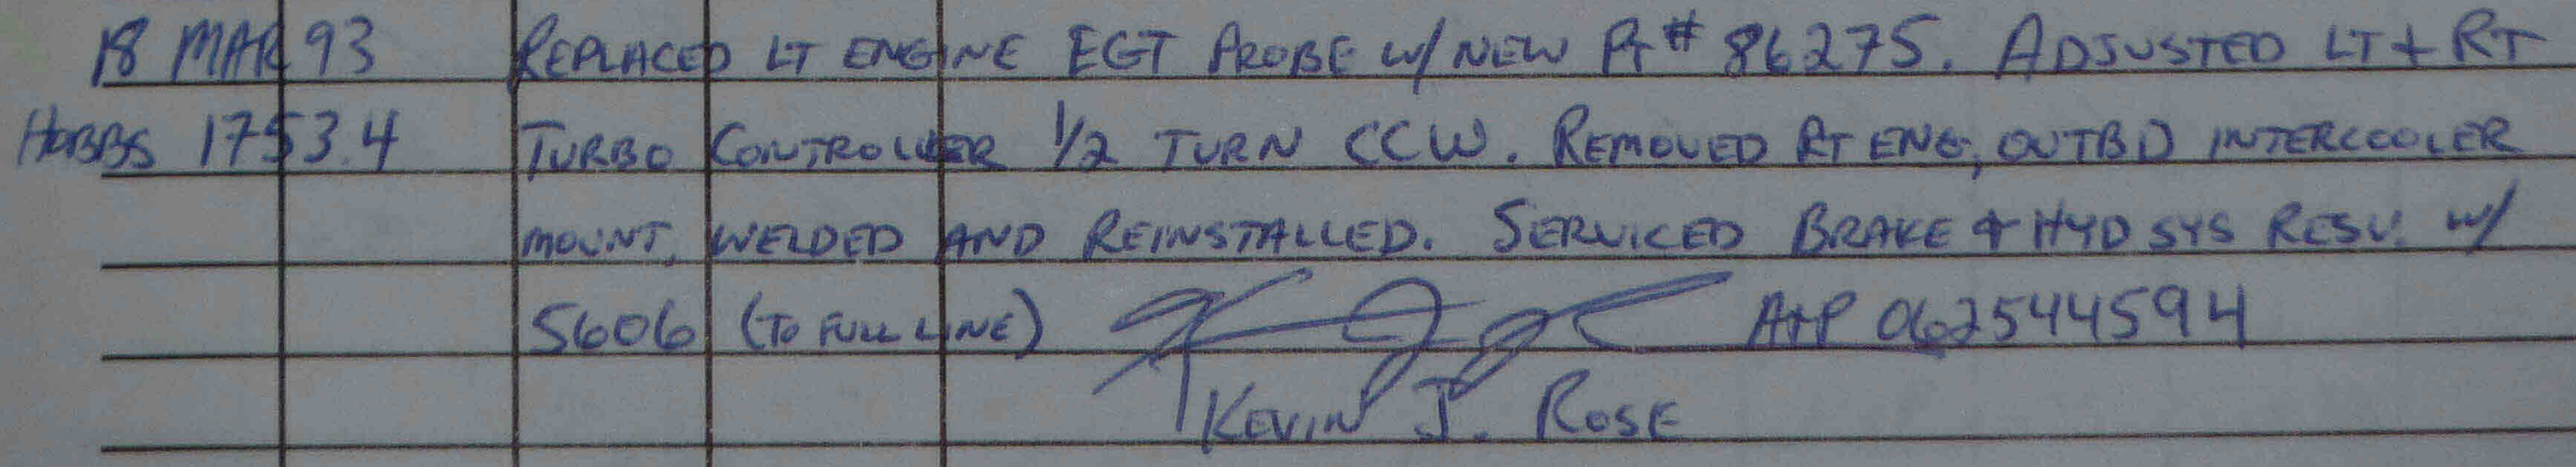 18 MAR 93 REPLACED LT ENGINE EGT PROBE W/ NEW PT # 86275. ADJUSTED LT + RT
HOBBS 1753.4 TURBO CONTROLLER 1/2 TURN CCW. REMOVED RT ENG, OUTBD INTERCOOLER
MOUNT, WELDED AND REINSTALLED. SERVICED BRAKE & HYD SYS RESV. W/
5606 (TO FULL LINE) A+P 062544594
KEVIN J. ROSE